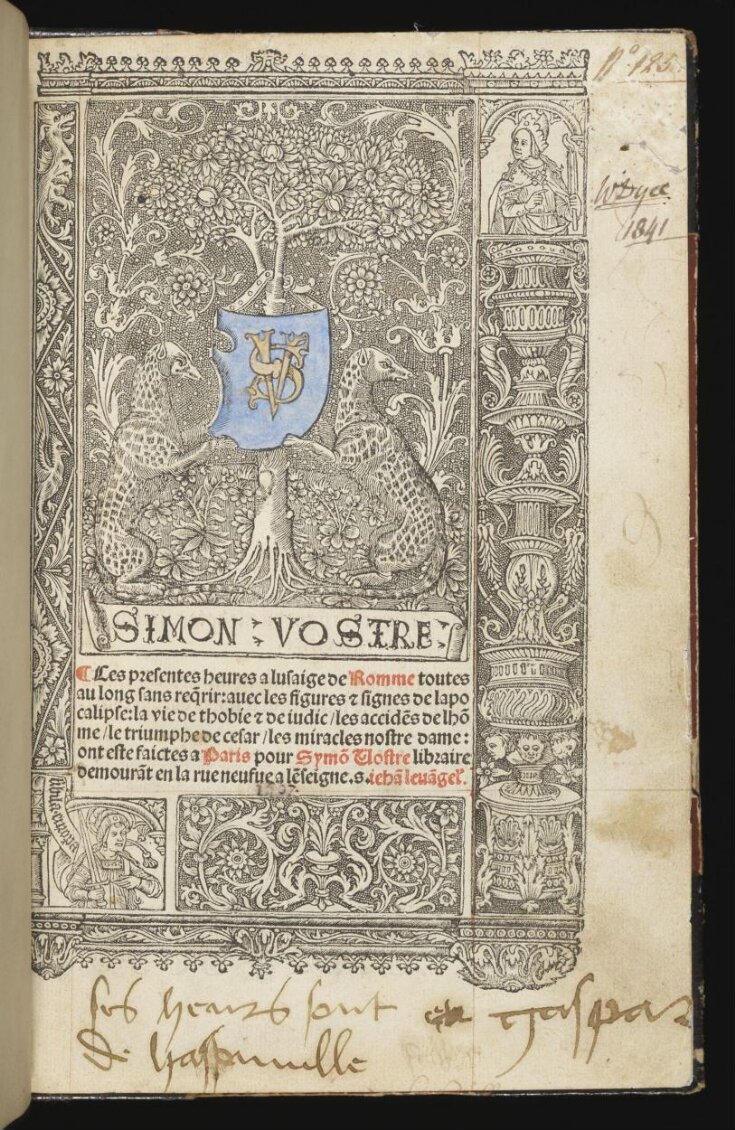 No 125.
WDyce
1841
SV
SIMON : VOSTRE :
¶ Les presentes heures a lusaige de Romme toutes
au long sans reqͥrir: auec les figures ⁊ signes de lapo
calipse: la vie de thobie ⁊ de iudic / les accidẽs de lhõ
me / le triumphe de cesar / les miracles nostre dame:
ont este faictes a Paris pour Symõ Uostre libraire
demourãt en la rue neufue a lẽseigne .s. iehã leuãgeł.
ses heurs sont a gaspar
de